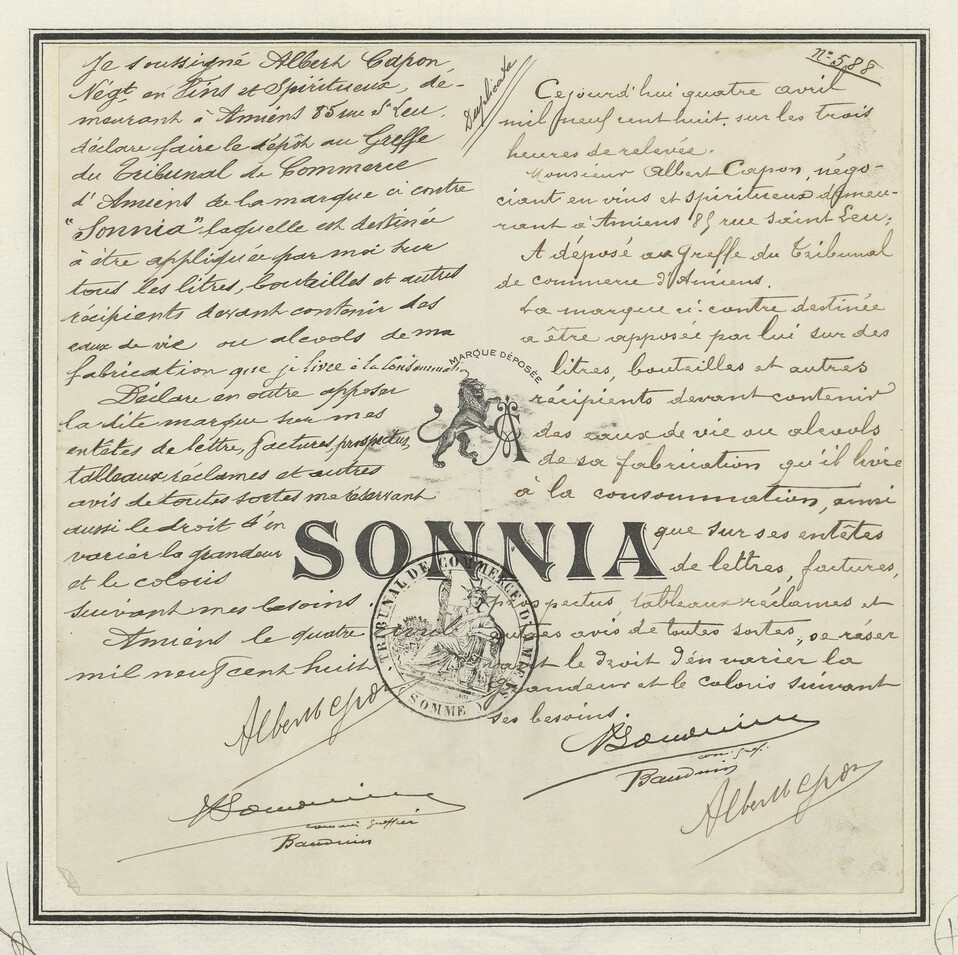 Je soussigné Albert Capon
Négt en Vins et Spiritueux, de-
meurant à Amiens 85 rue St Leu.
déclare faire le dépôt au Greffe
du Tribunal de Commerce
d'Amiens de la marque ci contre
"Sonnia" laquelle est destinée
à être appliquée par moi sur
tous les litres, bouteilles et autres
récipients devant contenir des
eaux de vie ou alcools de ma
fabrication que je livre à la Consommation
Déclare en outre apposer
la dite marque sur mes
entêtes de lettre, factures, prospectus,
tableaux réclames et autres
avis de toutes sortes me réservant
aussi le droit d'en
varier la grandeur
et le coloris
suivant mes besoins.
Amiens le quatre avril
mil neuf cent huit
Albert Capon
Baudouin
commis greffier
Bauduin
Duplicata
N° 588
Cejourd'hui quatre avril
mil neuf cent huit. sur les trois
heures de relevée.
Monsieur Albert Capon, négo-
ciant en vins et spiritueux demeu-
rant à Amiens 85 rue Saint Leu;
A déposé au Greffe du Tribunal
de commerce d'Amiens.
La marque ci-contre destinée
a être apposée par lui sur des
litres, bouteilles et autres
récipients devant contenir
des eaux de vie ou alcools
de sa fabrication qu'il livre
à la consommation, ainsi
que sur ses entêtes
de lettres, factures,
prospectus, tableaux réclames et
autres avis de toutes sortes, se réser
vant le droit d'en varier la
grandeur et le coloris suivant
ses besoins.
Bauduin
Albert Capon
MARQUE DÉPOSÉE
AC
SONNIA
TRIBUNAL DE COMMERCE D'AMIENS
SOMME